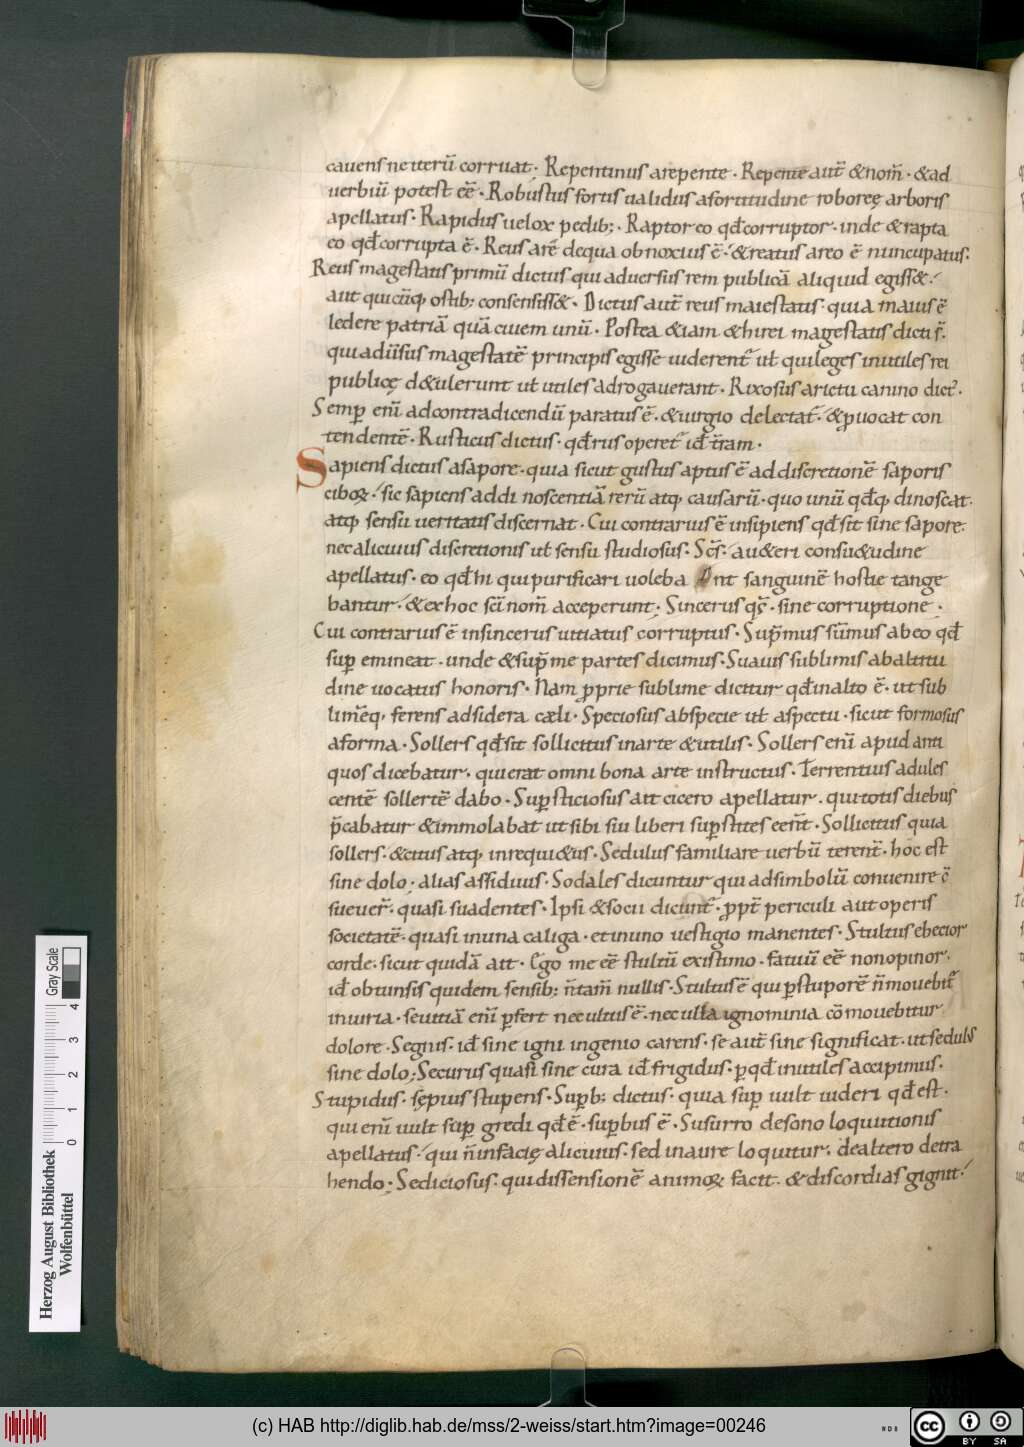 cauens ne iterū corruat; Repentinus a repente · Repente aut̄ & nom̄ · & ad
uerbiū potest eē · Robustus fortis ualidus a fortitudine roboreę arboris
apellatus · Rapidus uelox pedib; · Raptor eo qđ corruptor · inde & rapta
eo qđ corrupta ē · Reus a rē de qua obnoxius ē · & reatus a reo ē nuncupatus:
Reus magestatis primū dictus qui aduersus rem publicā aliquid egiss&
aut quicūq, ostib; consensiss& · Dictus aut̄ reus maiestatis · quia maius ē
ledere patriā quā ciuem unū · Postea &iam & hi rei magestatis dicti s̄.
qui adūsus magestatē principis egisse uiderent̄ ut quileges inutiles rei
publicę d&ulerunt ut utiles adrogauerant · Rixosus a rictu canino dict̄.
Semp enī ad contradicendū paratus ē · & iurgio delectat̄ · & puocat con
tendentē · Rusticus dictus · qđ rus operet̄ id t̄ram ·
Sapiens dictus a sapore · quia sicut gustus aptus ē ad discretionē saporis
ciboꝝ · sic sapiens ad dinoscentiā rerū atq, causarū · quo unū qđq, dinoscat ·
atq, sensu ueritatis discernat · Cui contrarius ē insipiens qđ sit sine sapore ·
nec alicuius discretionis ut sensu studiosus · Sc̄s · a u&eri consu&udine
apellatus · eo qđ hi qui purificari uoleba nt sanguinē hostie tange
bantur · & ex hoc sc̄i nom̄ acceperunt; Sincerus qs̄ · sine corruptione ·
Cui contrarius ē insincerus uitiatus corruptus · Sup̄mus sūmus ab eo qđ
sup emineat · unde & sup̄me partes dicimus · Suauis sublimis ab altitu
dine uocatus honoris · Nam pprie sublime dicitur qđ in alto ē · ut sub
lim̄eq, ferens ad sidera cæli · Speciosus ab specie ut aspectu · sicut formosus
a forma · Sollers qđ sit sollicitus in arte & utilis · Sollers enī apud anti
quos dicebatur · qui erat omni bona arte instructus · Terrentius adules
centē sollertē dabo · Supsticiosus ait cicero apellatur · qui totis diebus
p̄cabatur & immolabat ut sibi sui liberi supstites eent̄ · Sollicitus quia
sollers · & citus atq, inrequi&us · Sedulus familiare uerbū terent̄ · hoc est
sine dolo; alias assiduus · Sodales dicuntur qui ad simbolū conuenire c̄
sueuer̄ · quasi suadentes · Ipsi & socii dicunt̄ · ppt̄ periculi aut operis
societatē · quasi in una caliga · et in uno uestigio manentes · Stultus ebecior
corde · sicut quidā ait · Ego me eē stultū existimo · fatuū eē non opinor ·
id obtunsis quidem sensib; n̄tam̄ nullis · Stultus ē qui pstuporē n̄ mouebit̄
iniuria · seuitiā enī pfert nec ultus ē · nec ulla ignominia cōmouebitur
dolore · Segnis · id sine igni ingenio carens · se aut̄ sine significat · ut sedulus
sine dolo; Securus quasi sine cura id frigidus · p qđ inutiles accipimus ·
Stupidus · sępius stupens · Supb; dictus · quia sup uult uideri qđ est ·
qui enī uult sup gredi qđ ē · supbus ē · Susurro de sono loquutionis
apellatus · qui n̄ in facię alicuius · sed in aure loquitur · de altero detra
hendo; Sediciosus · qui dissensionē animoꝝ facit · & discordias gignit ·
Gray Scale
0 1 2 3 4
Herzog August Bibliothek
Wolfenbüttel
(c) HAB http://diglib.hab.de/mss/2-weiss/start.htm?image=00246
cc BY SA